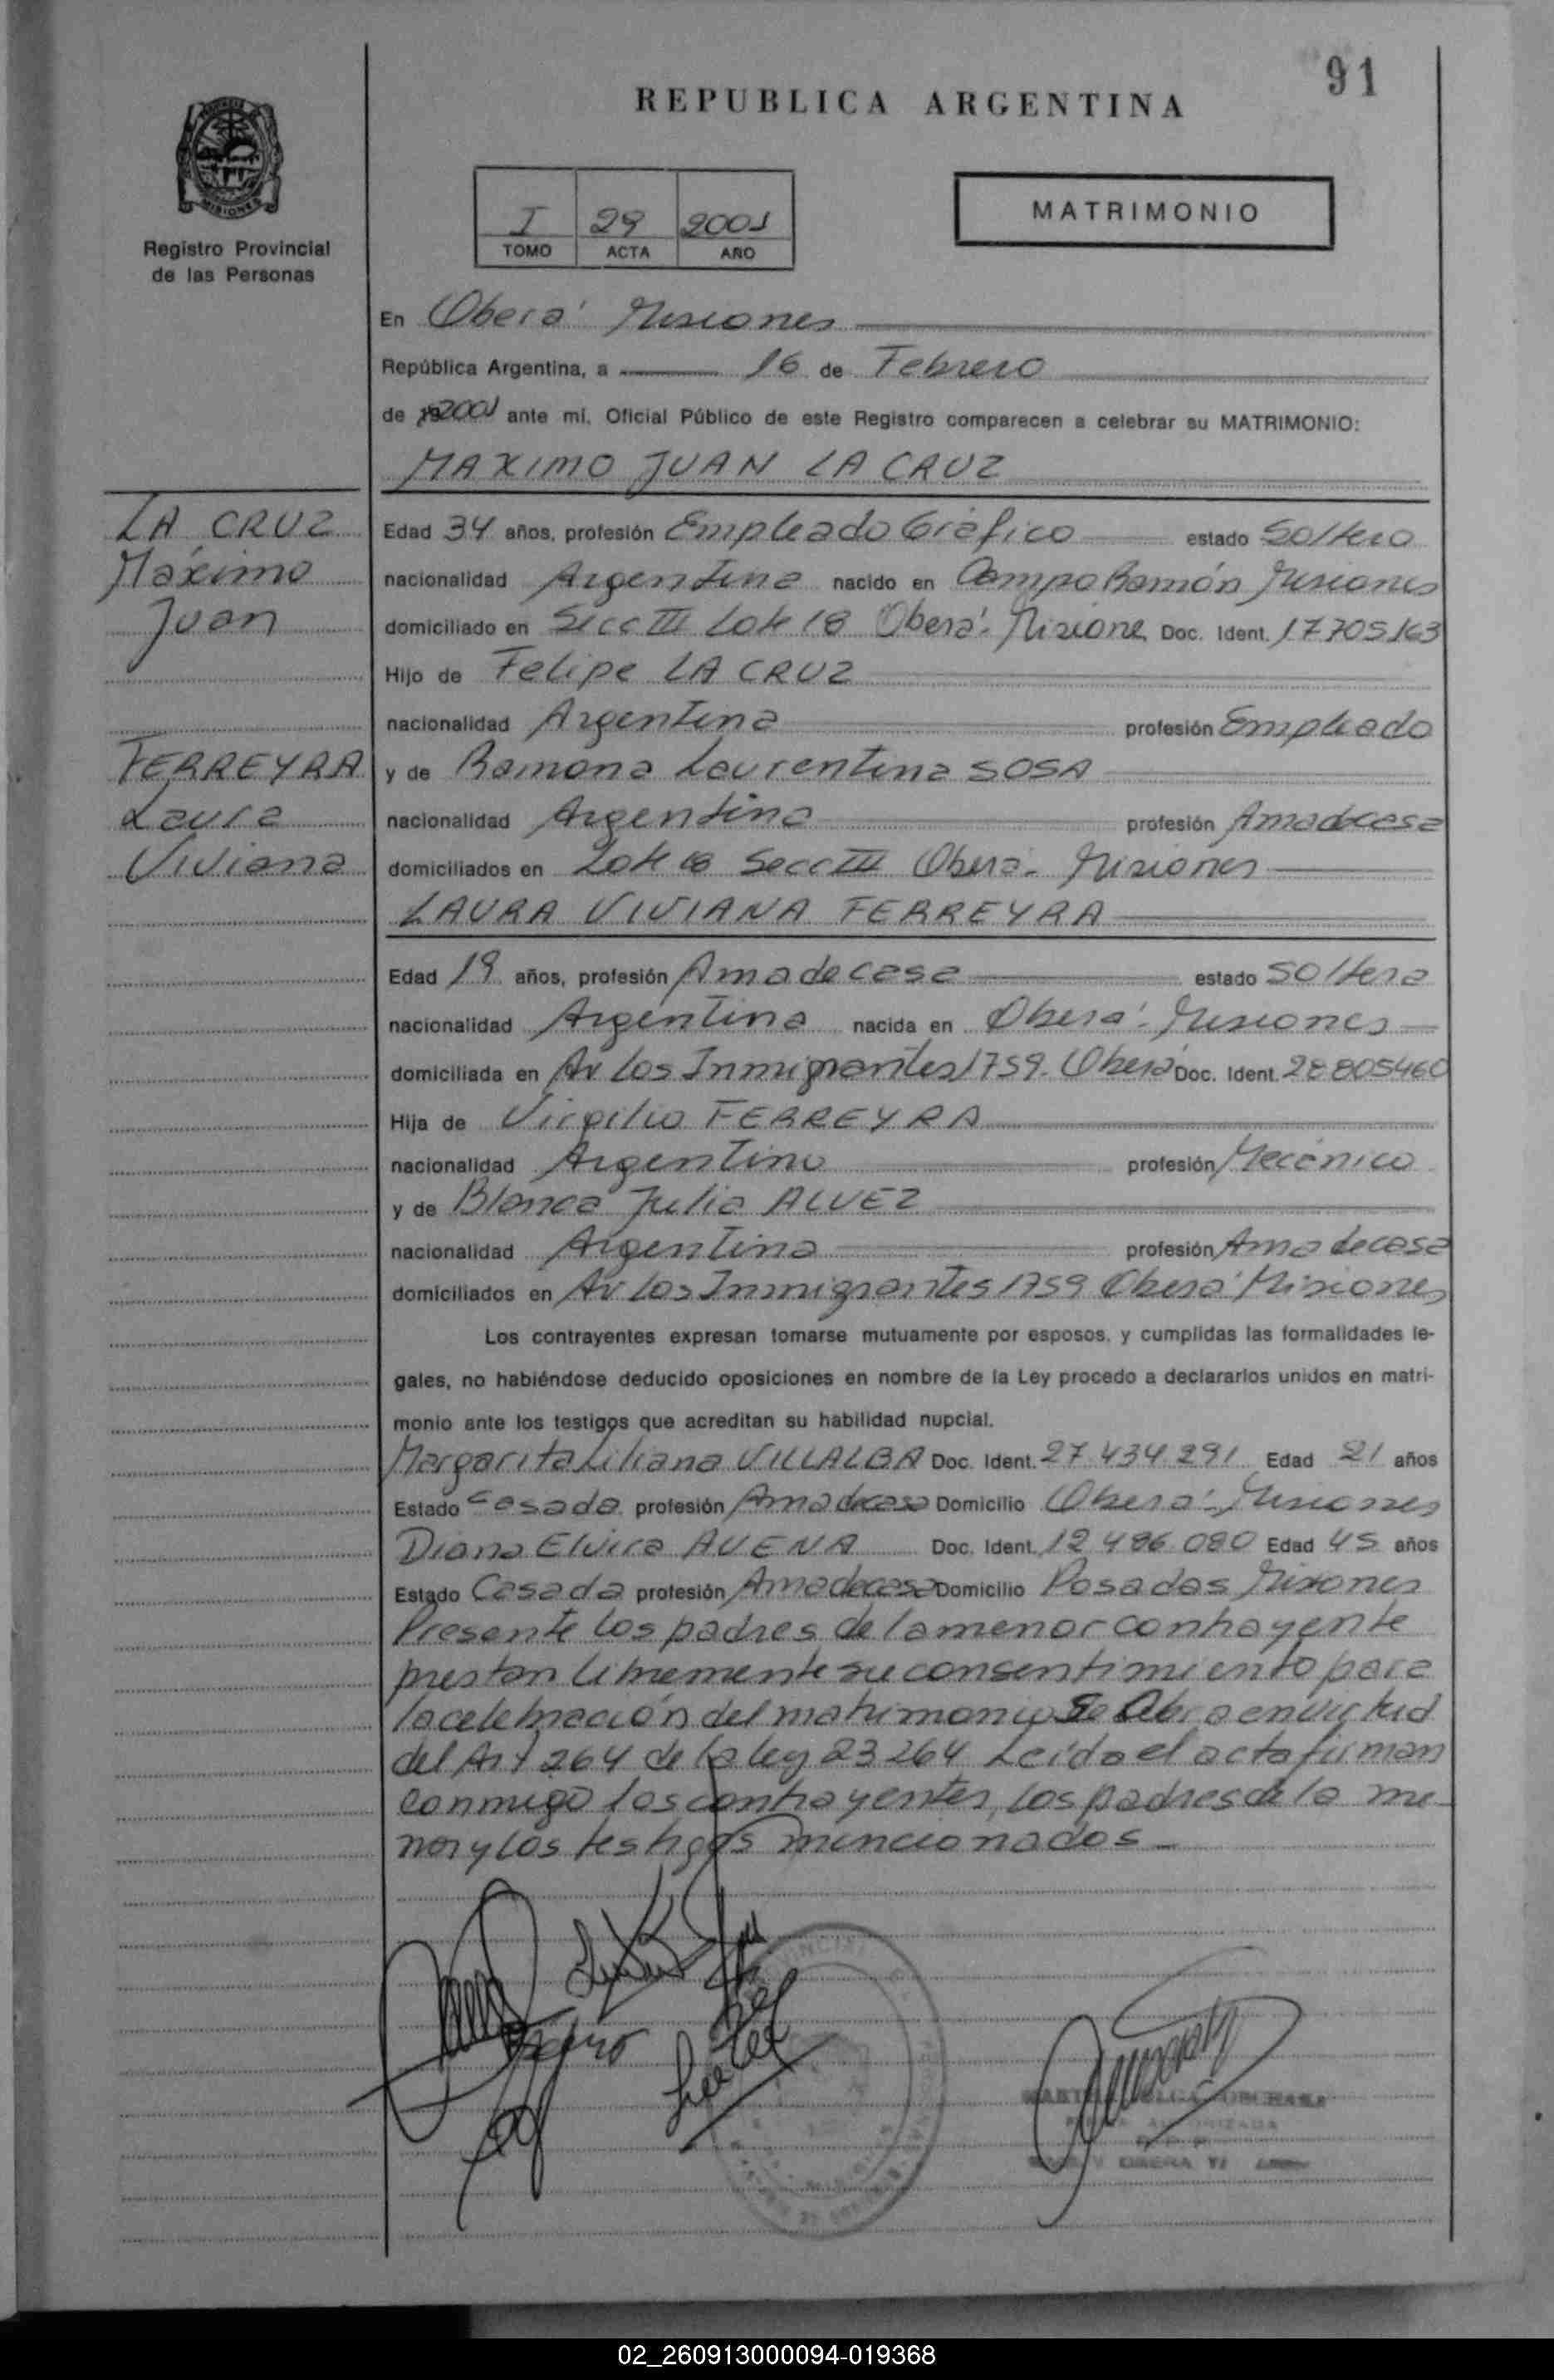 91
REPUBLICA ARGENTINA
MISIONES
Registro Provincial
de las Personas
I 29 2001
TOMO ACTA AÑO
MATRIMONIO
En Oberá Misiones
República Argentina, a 16 de Febrero
de 2001 ante mí, Oficial Público de este Registro comparecen a celebrar su MATRIMONIO:
MAXIMO JUAN LA CRUZ
LA CRUZ
Máximo
Juan
Edad 34 años, profesión Empleado Gráfico estado Soltero
nacionalidad Argentina nacido en Campo Ramón Misiones
domiciliado en Secc III Lote 18 Oberá. Misione Doc. Ident. 17705163
Hijo de Felipe LA CRUZ
nacionalidad Argentina profesión Empleado
y de Ramona Laurentina SOSA
nacionalidad Argentina profesión Amadecasa
domiciliados en Lote 18 Secc III Oberá. Misiones
FERREYRA
Laura
Viviana
LAURA VIVIANA FERREYRA
Edad 19 años, profesión Amadecasa estado Soltera
nacionalidad Argentina nacida en Oberá. Misiones
domiciliada en Av Los Inmigrantes 1759. Oberá Doc. Ident. 28805460
Hija de Virgilio FERREYRA
nacionalidad Argentino profesión Mecánico
y de Blanca Julia ALVEZ
nacionalidad Argentina profesión Ama decasa
domiciliados en Av Los Inmigrantes 1759 Oberá Misiones
Los contrayentes expresan tomarse mutuamente por esposos, y cumplidas las formalidades le-
gales, no habiéndose deducido oposiciones en nombre de la Ley procedo a declararlos unidos en matri-
monio ante los testigos que acreditan su habilidad nupcial.
Margarita Liliana VILLALBA Doc. Ident. 27 434 291 Edad 21 años
Estado Casada profesión Amadecasa Domicilio Oberá. Misiones
Diana Elvira AVENA Doc. Ident. 12 486 080 Edad 45 años
Estado Casada profesión Amadecasa Domicilio Posadas Misiones
Presente los padres de la menor contrayente
prestan libremente su consentimiento para
la celebración del matrimonio Se Obra en virtud
del Art 264 de la ley 23264 Leída el acta firman
conmigo los contrayentes, los padres de la me-
nor y los testigos mencionados
02_260913000094-019368